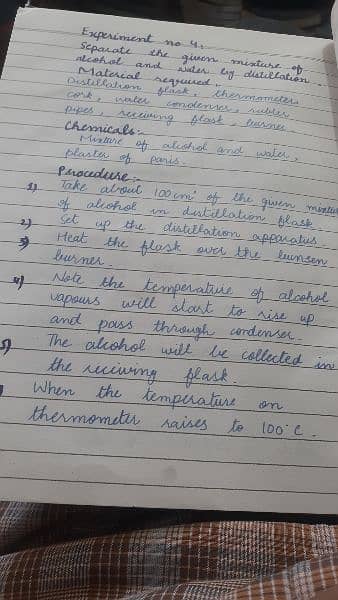 Experiment no 4.
Separate the given mixture of
alcohol and water by distillation.
Material required.
Distillation flask, thermometer
cork, water condenser, rubber
pipes, receiving flask, burner
Chemicals:-
Mixture of alcohol and water,
plaster of paris.
Procedure:-
1) Take about 100 cm³ of the given mixture
of alcohol in distillation flask
2) Set up the distillation apparatus.
3) Heat the flask over the bunsen
burner
4) Note the temperature of alcohol
vapours will start to rise up
and pass through condenser.
5) The alcohol will be collected in
the receiving flask.
When the temperature on
thermometer raises to 100°c.